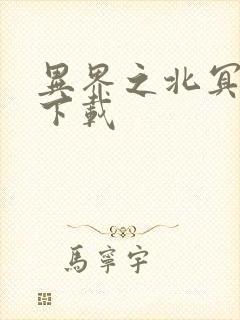 異界之北冥
下載
馬寧宇